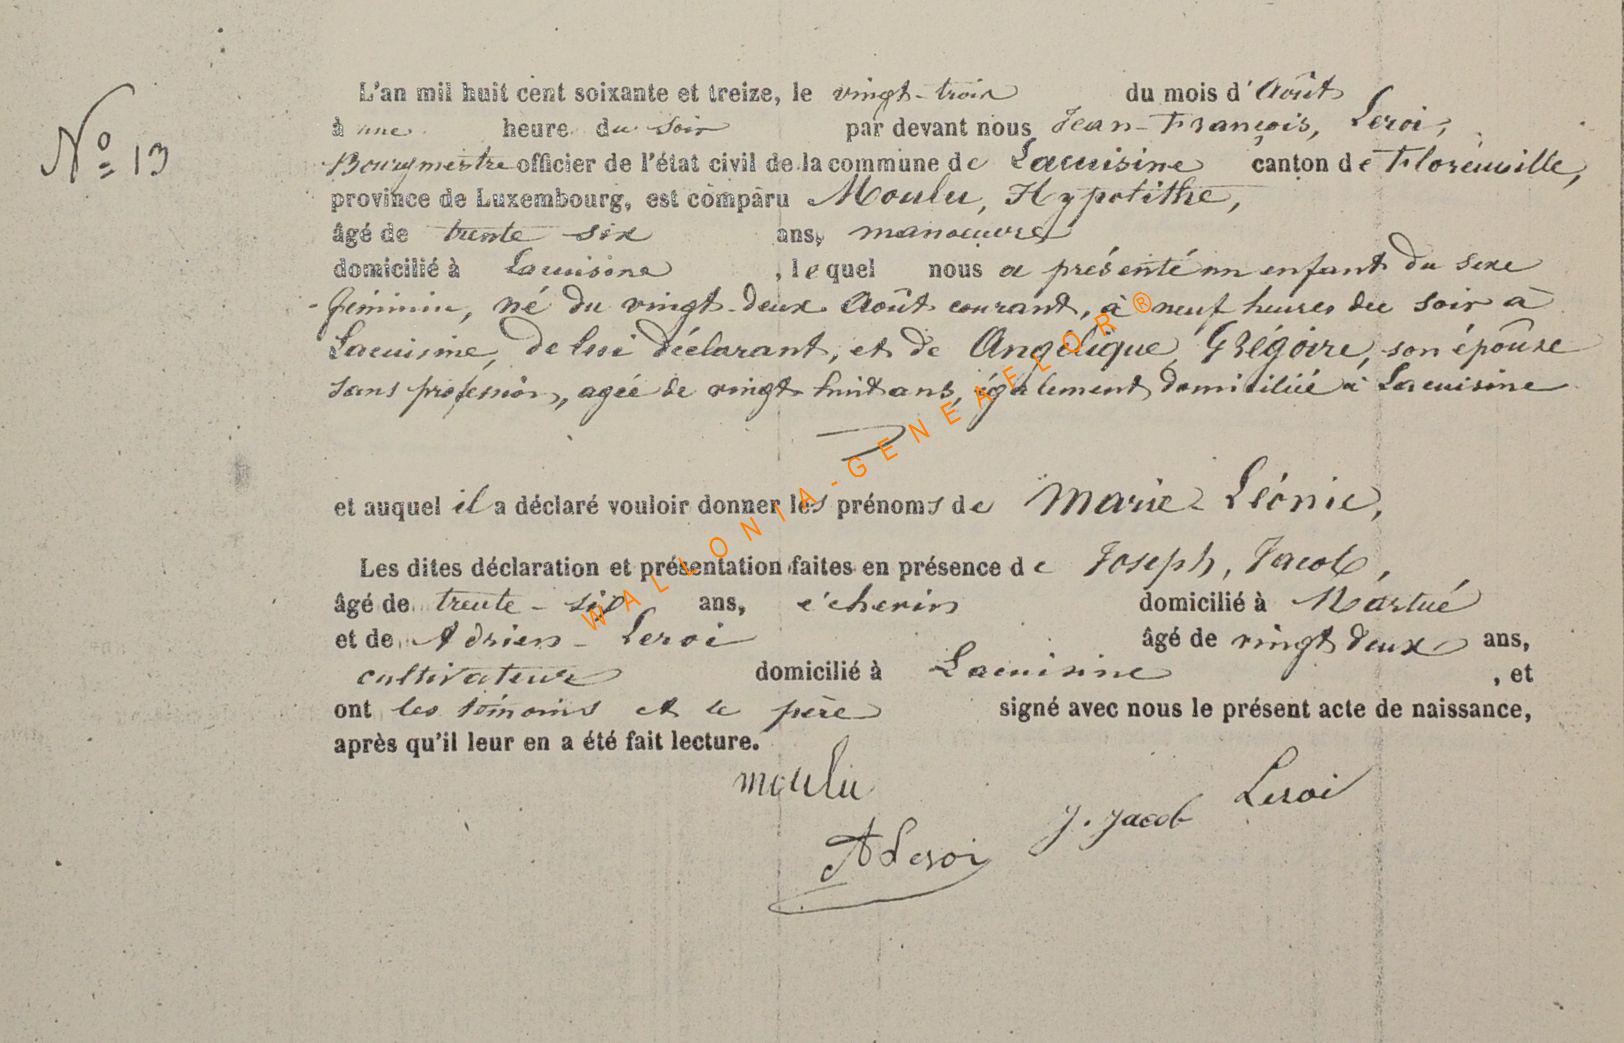 N° 13
L'an mil huit cent soixante et treize, le vingt-trois du mois d'Août
à une heure du soir par devant nous Jean-François, Leroi,
Bourgmestre officier de l'état civil de la commune de Lacuisine canton de Florenville,
province de Luxembourg, est comparu Moulu, Hypolithe,
âgé de trente six ans, manoeuvre
domicilié à Lacuisine, lequel nous a présenté un enfant du sexe
féminin, né du vingt-deux Août courant, à neuf heures du soir à
Lacuisine, de lui déclarant, et de Angélique, Grégoire, son épouse
sans profession, agée de vingt huit ans, également domiciliée à Lacuisine
et auquel il a déclaré vouloir donner les prénoms de Marie Léonie,
Les dites déclaration et présentation faites en présence de Joseph, Jacob,
âgé de trente-six ans, échevin domicilié à Martué
et de Adrien-Leroi âgé de vingt deux ans,
cultivateur domicilié à Lacuisine, et
ont les témoins et le père signé avec nous le présent acte de naissance,
après qu'il leur en a été fait lecture.
moulu
Leroi
J. Jacob
A Leroi
WALLONIA-GENEAELOR®